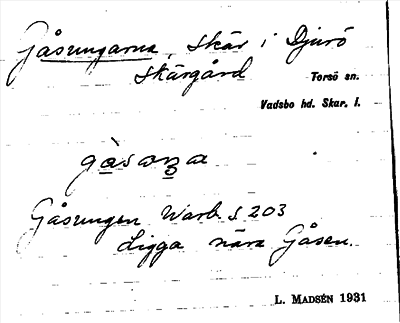 Gåsungarna, skär i Djurö
skärgård
Torsö sn.
Vadsbo hd. Skar. l.
gåsoŋa
Gåsungen Warb. S 203
Ligga nära Gåsen.
L. MADSÉN 1931